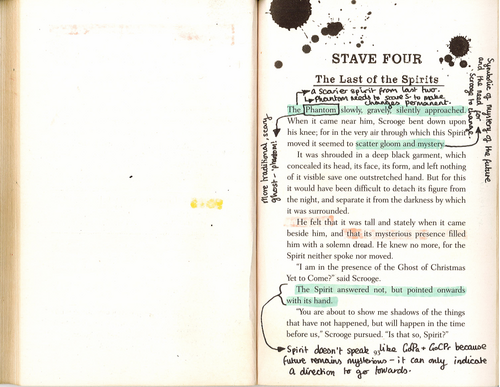 STAVE FOUR
The Last of the Spirits
a scarier spirit from last two.
Phantom needs to scare S to make
changes permanent.
The Phantom slowly, gravely, silently approached.
When it came near him, Scrooge bent down upon
his knee; for in the very air through which this Spirit
moved it seemed to scatter gloom and mystery.
It was shrouded in a deep black garment, which
concealed its head, its face, its form, and left nothing
of it visible save one outstretched hand. But for this
it would have been difficult to detach its figure from
the night, and separate it from the darkness by which
it was surrounded.
He felt that it was tall and stately when it came
beside him, and that its mysterious presence filled
him with a solemn dread. He knew no more, for the
Spirit neither spoke nor moved.
"I am in the presence of the Ghost of Christmas
Yet to Come?" said Scrooge.
The Spirit answered not, but pointed onwards
with its hand.
"You are about to show me shadows of the things
that have not happened, but will happen in the time
before us," Scrooge pursued. "Is that so, Spirit?"
Spirit doesn't speak like GoCPa + GoCPr because
future remains mysterious - it can only indicate
a direction to go towards.
More traditional, scary
ghost - 'phantom'
Symbolic of mystery of the future
and the need for
Scrooge to change.